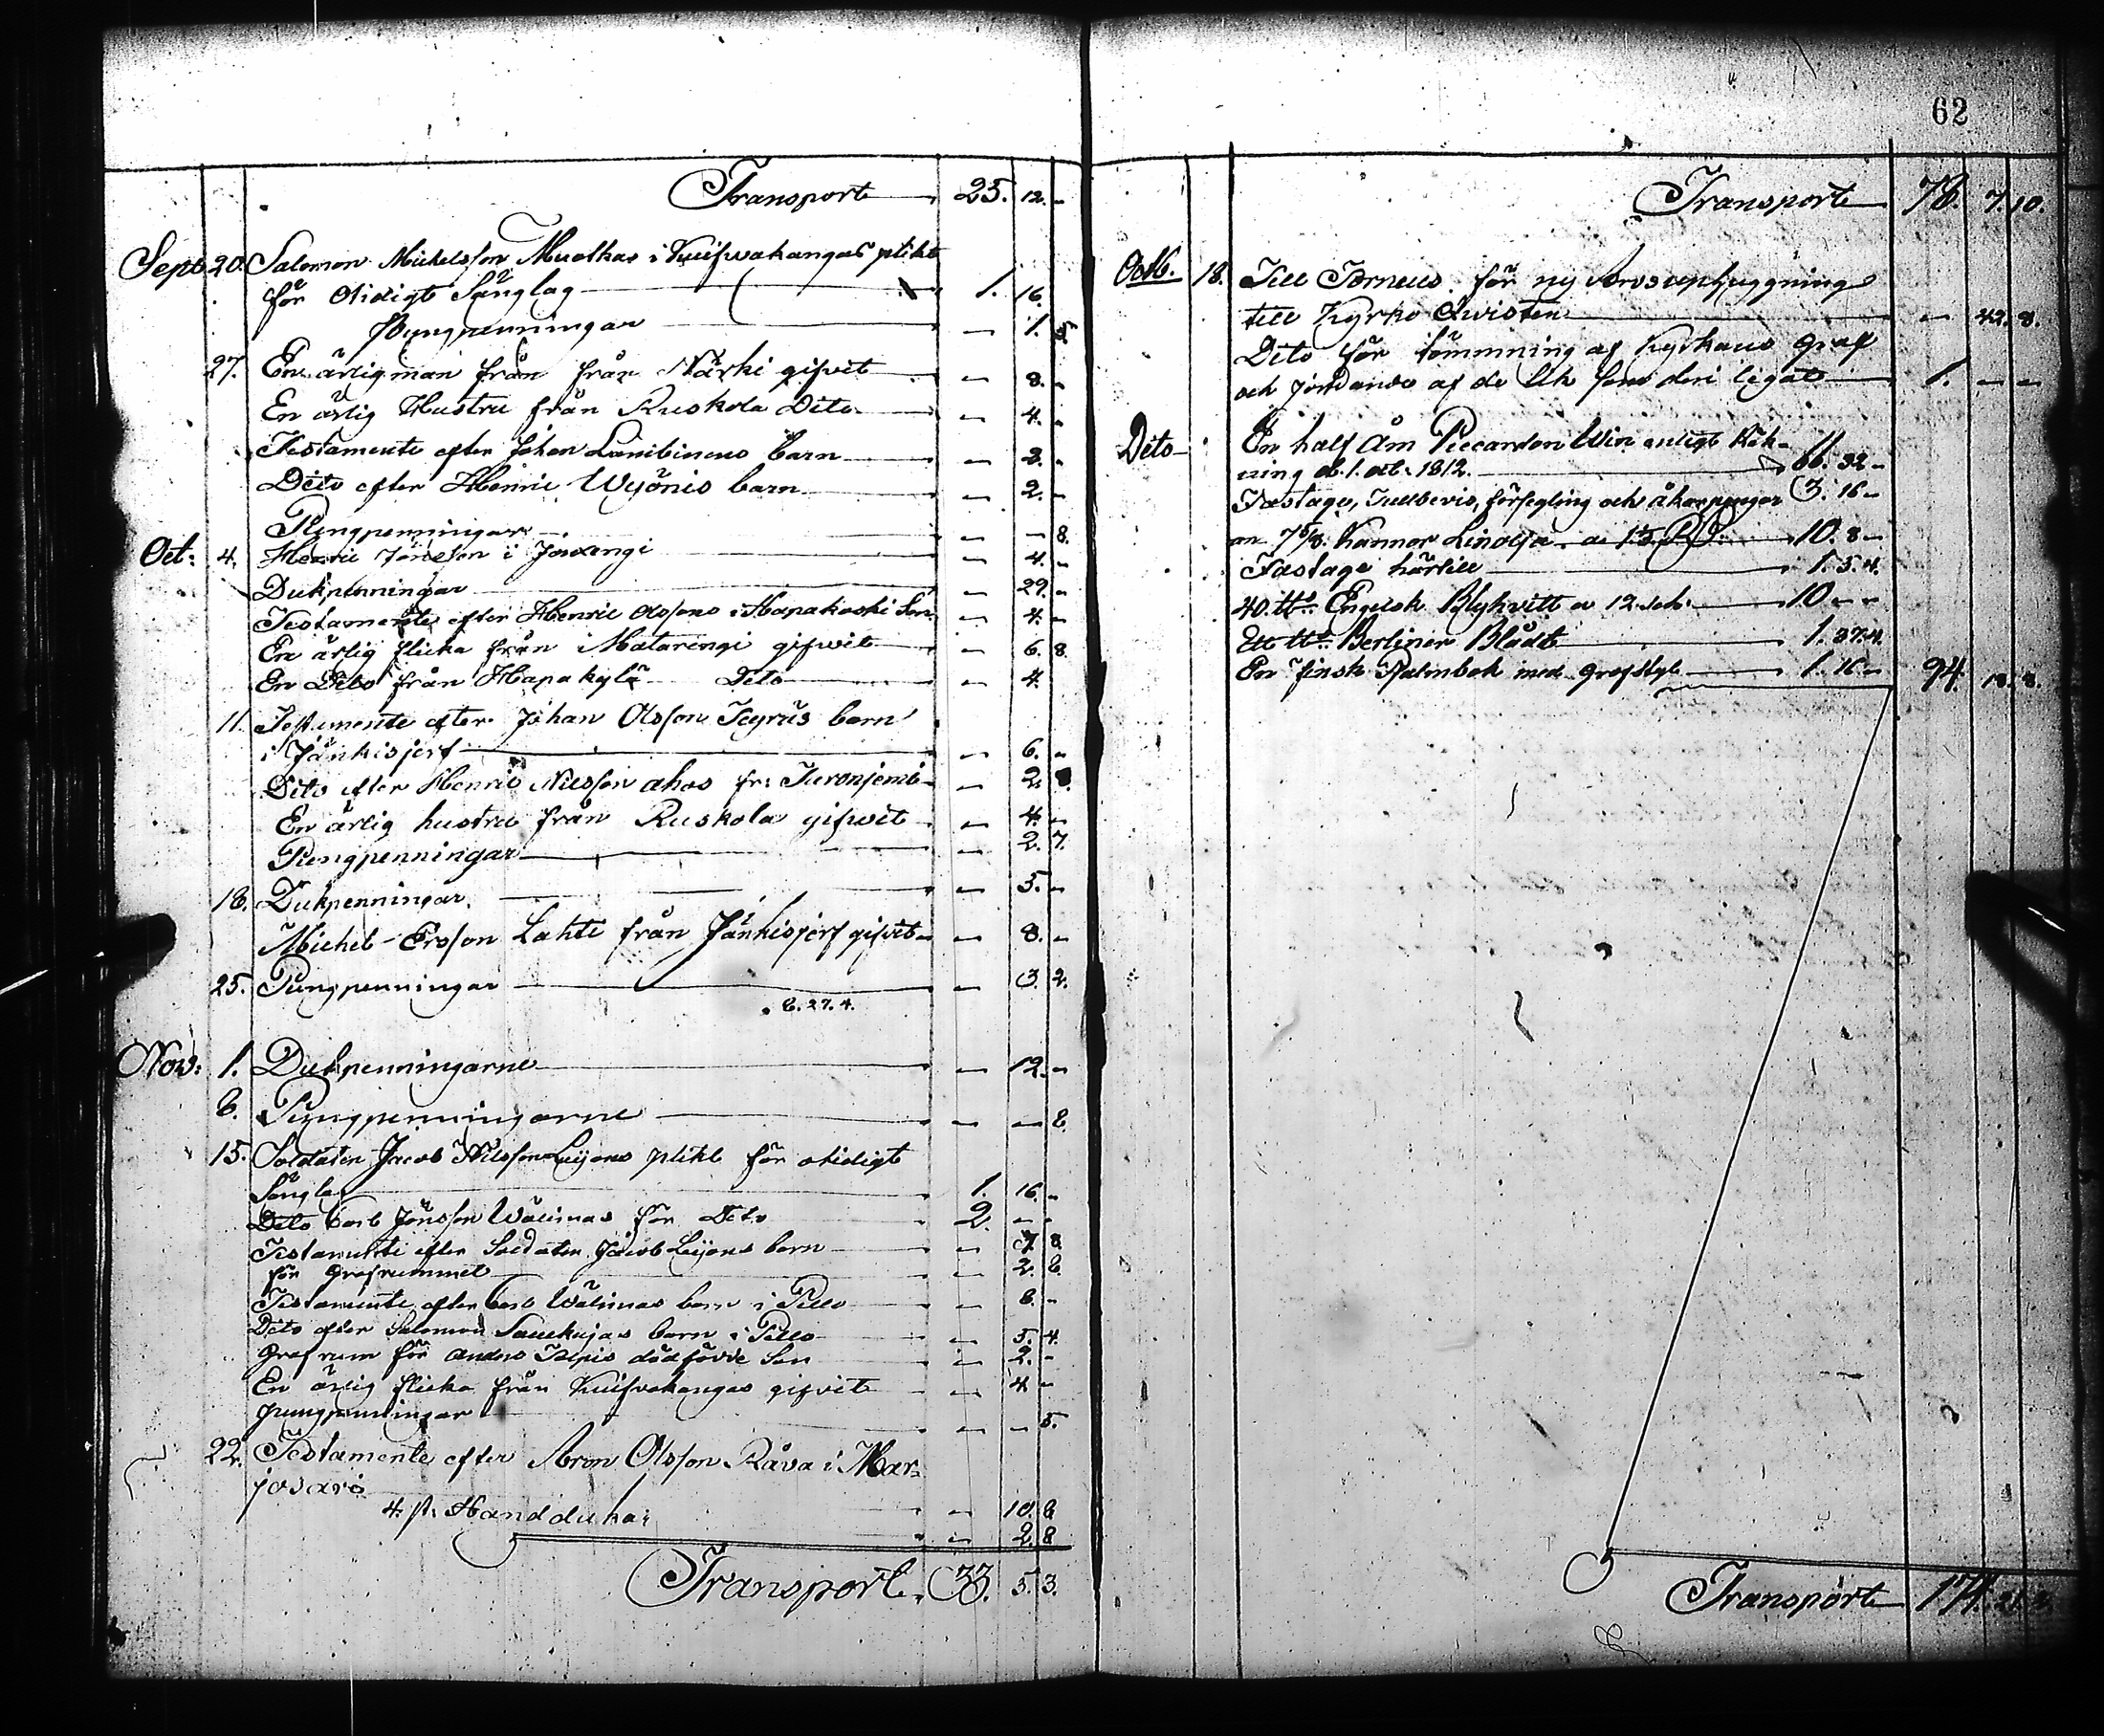 Transport 25. 12. -
Sept. 20. Salomon Michelsson Muotkas i Kuifvakangas plikt
för otidigt Sänglag 1. 16.
Pungpenningar - 1. 5.
27. En ärlig man från från Närki gifvit - 8. -
En ärlig Hustru från Ruskola Dito - 4. -
Testamente efter Johan barn
Dito efter Henric Weyönis barn - 2. -
Pungpenningar - - 8.
Oct: 4. Henric Jönsson i Jouxengi - 4. -
Dukpenningar - 29. -
Testamente efter Henric Olssons i Hapakoski Son - 4. -
En ärlig flicka från Matarengi gifvit - 6. 8.
En Dito från Hapakylä Dito - 4.
11. Testamente efter Johan Olsson barn
i Jänkisjerf - 6. -
Dito efter Henric Nilsson ahos fr: Turonjemi - 2. 8.
En ärlig hustru från Ruskola gifvit - 4. -
Pungpenningar - 2. 7.
18. Dukpenningar. - 5. -
Michel Ersson Lahti från Jänkisjerf gifvit - 8. -
25. Pungpenningar - 3. 2.
6. 27. 4.
Nov: 1. Dukpenningarne - 12. -
Pungpenningarne - -
15. Soldaten Jacob Nilsson Leijons plikt för otidigt
Sänglag 1. 16. -
Dito Carl Jönsson Wälimas för Dito 2. - -
Testamente efter Soldaten Jacob Leijons barn
för Grafrummet - 2.
Testamente efter Carl Wälimas barn i Pello
Dito efter Salomon barn i Pello - 5. 4.
Grafrum för Anders dödfödde Son - 2. -
En ärlig flicka från Kuifvakangas gifvit - 4 -
pungpenningar - - 5.
22. Testamente efter Aron Olsson Råva i Mar=
josari
4. st. Handdukar - 10.
- 2. 8
Transport. 33. 5. 3.
62
Transport 78. 7. 10.
Octb. 18. Till Torneus för ny
till Kyrko Qvisten - 42. 8.
Dito för tömmning af Kyrkans Graf
och jordande af de Lik som deri legat 1. - -
Dito En half Åm Piccardon Win enligt Räk-
ning d. 1. oct. 1812. 66. 32 -
Fastage, Tullbevis, försegling och åkarpengar 3. 16 -
7 5/8. Kannor Linolja a 10. 8 -
Fastage härtill 1. 5. 4.
40. tt Engelsk Blyhvitt a 12. sch. 10 - -
Ett tt Berliner Blått 1. 37. 4.
En finsk Psalmbok med Grofstyl 1. 16 - 94.
Transport 174.